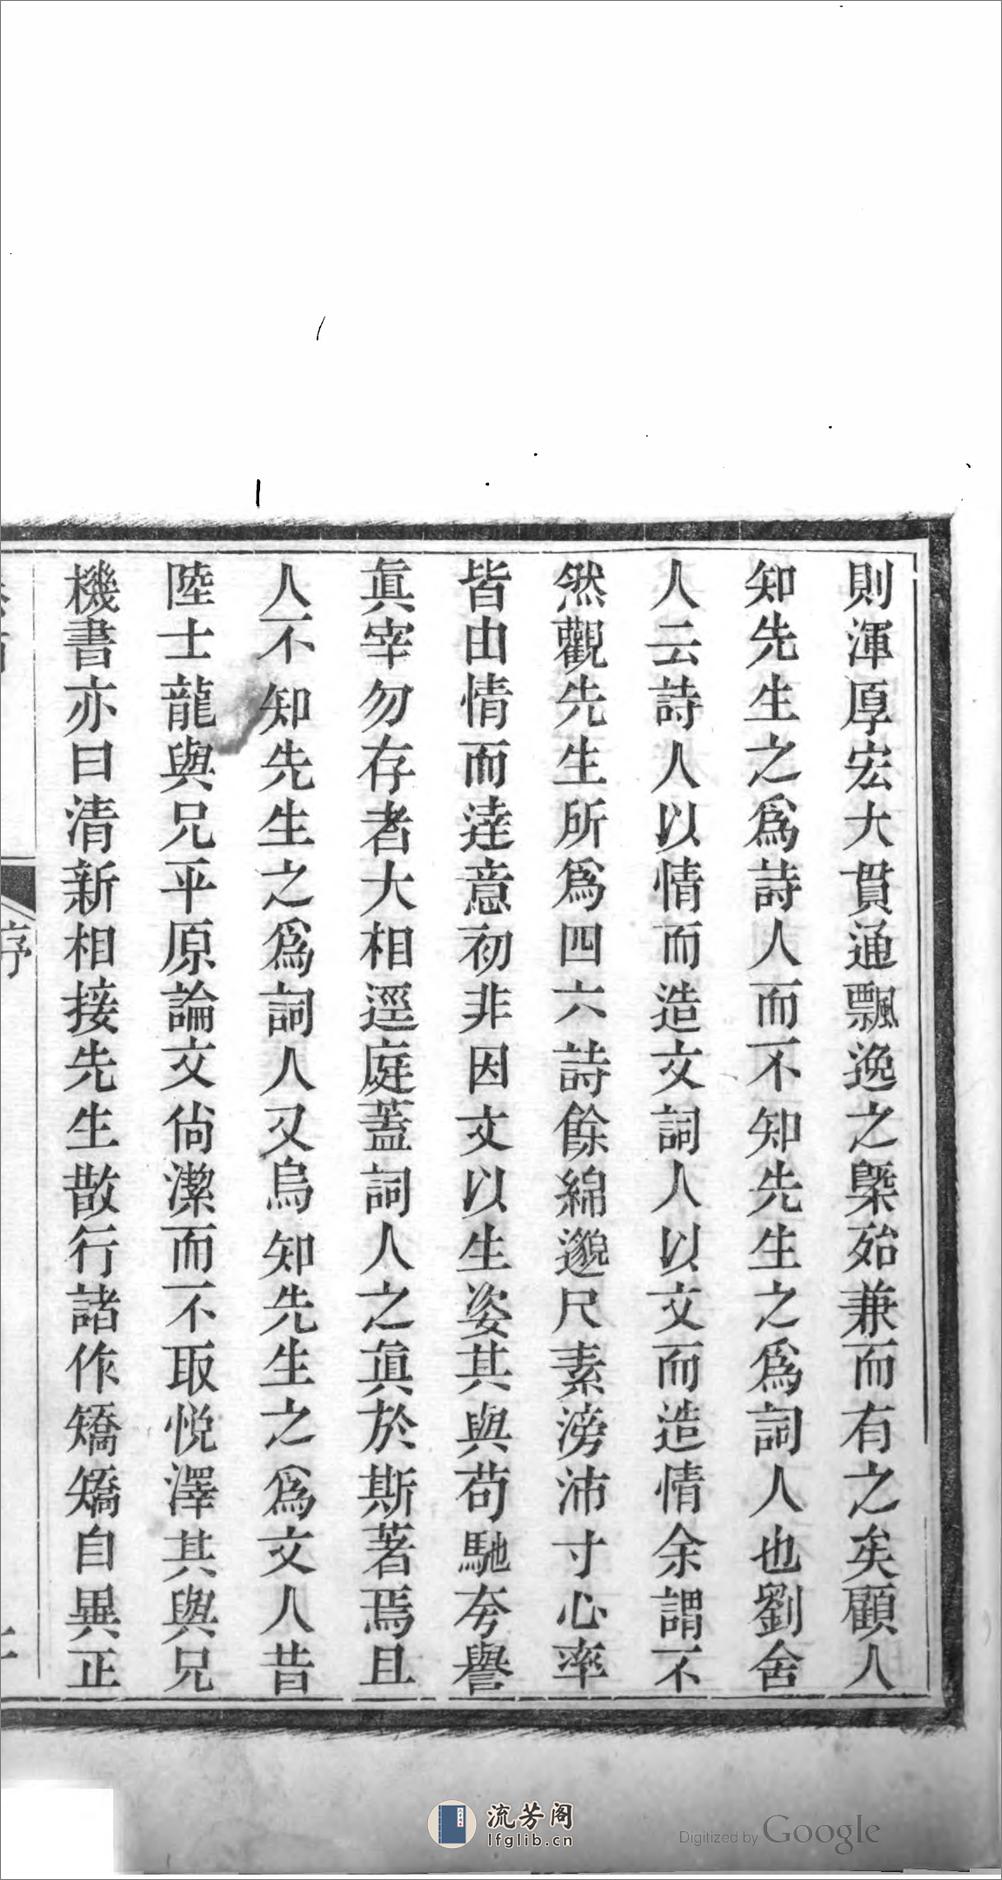 則渾厚宏大貫通飄逸之槩殆兼而有之矣顧人
知先生之爲詩人而不知先生之爲詞人也劉舍
人云詩人以情而造文詞人以文而造情余謂不
然觀先生所爲四六詩餘綿邈尺素滂沛寸心率
皆由情而達意初非因文以生姿其與苟馳夸譽
眞宰勿存者大相逕庭蓋詞人之眞於斯著焉且
人不知先生之爲詞人又烏知先生之爲文人昔
陸士龍與兄平原論文尙潔而不取悅澤其與兄
機書亦曰清新相接先生散行諸作矯矯自異正
序
流芳阁
lfglib.cn
Digitized by Google